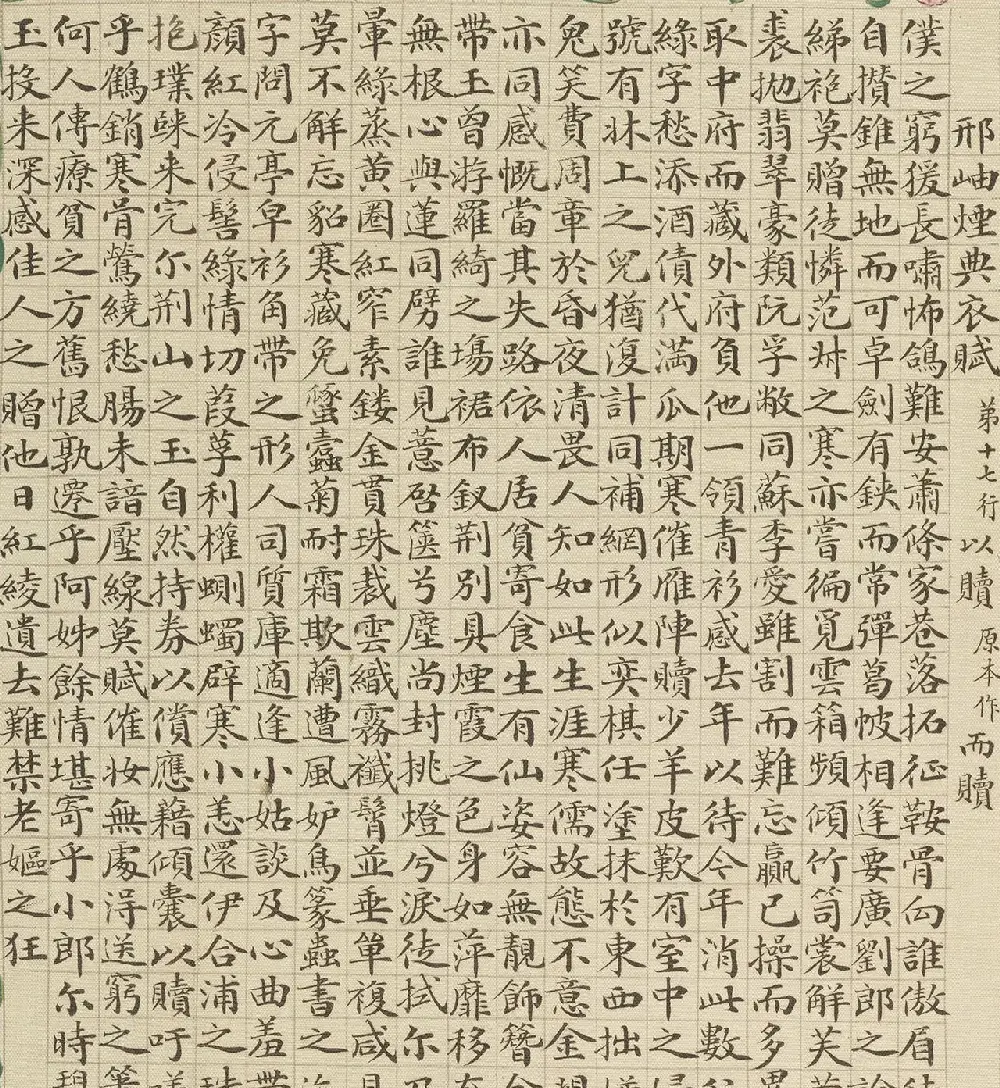 邢岫煙典衣賦 第十七行 以贖 原本作 而贖
僕之窮猨長嘯怖鴿難安蕭條家巷落拓征鞍骨向誰傲眉
自攢錐無地而可卓劍有鋏而常彈葛帔相逢要廣劉郎之
綈袍莫贈徒憐范叔之寒亦嘗徧覓雲箱頻傾竹笥裳解芙
裘拋翡翠豪類阮孚敝同蘇李愛雖割而難忘贏已操而多
取中府而藏外府負他一領青衫感去年以待今年消此數
綠字愁添酒債代滿瓜期寒催雁陣贖少羊皮歎有室中之
號有牀上之兒猶復計同補網形似奕棋任塗抹於東西拙
鬼笑費周章於昏夜清畏人知如此生涯寒儒故態不意金
亦同感慨當其失路依人居貧寄食生有仙姿容無靚飾簪
帶玉曾游羅綺之塲裙布釵荆別具煙霞之色身如萍靡移
無根心與蓮同劈誰見薏啟篋兮塵尚封挑燈兮淚徒拭尔
暈綠蒸黃圈紅窄素鏤金貫珠裁雲織霧襳髾並垂單複咸
莫不解忘貂寒藏免蠹菊耐霜欺蘭遭風妒鳥篆蟲書之
字問元亭卑衫角帶之形人司質庫適逢小姑談及心曲羞
顏紅冷侵髩綠情切葭莩利權蠲辟寒小恙還伊合浦之
抱璞来完尔荆山之玉自然持券以償應藉傾囊以贖吁
乎鶴銷寒骨鶯繞愁腸未諳壓線莫賦催妝無處得送窮之
何人傳療貧之方舊恨孰乎阿姊餘情堪寄乎小郎尔時
玉投来深感佳人之贈他日紅綾遺去難禁老嫗之狂